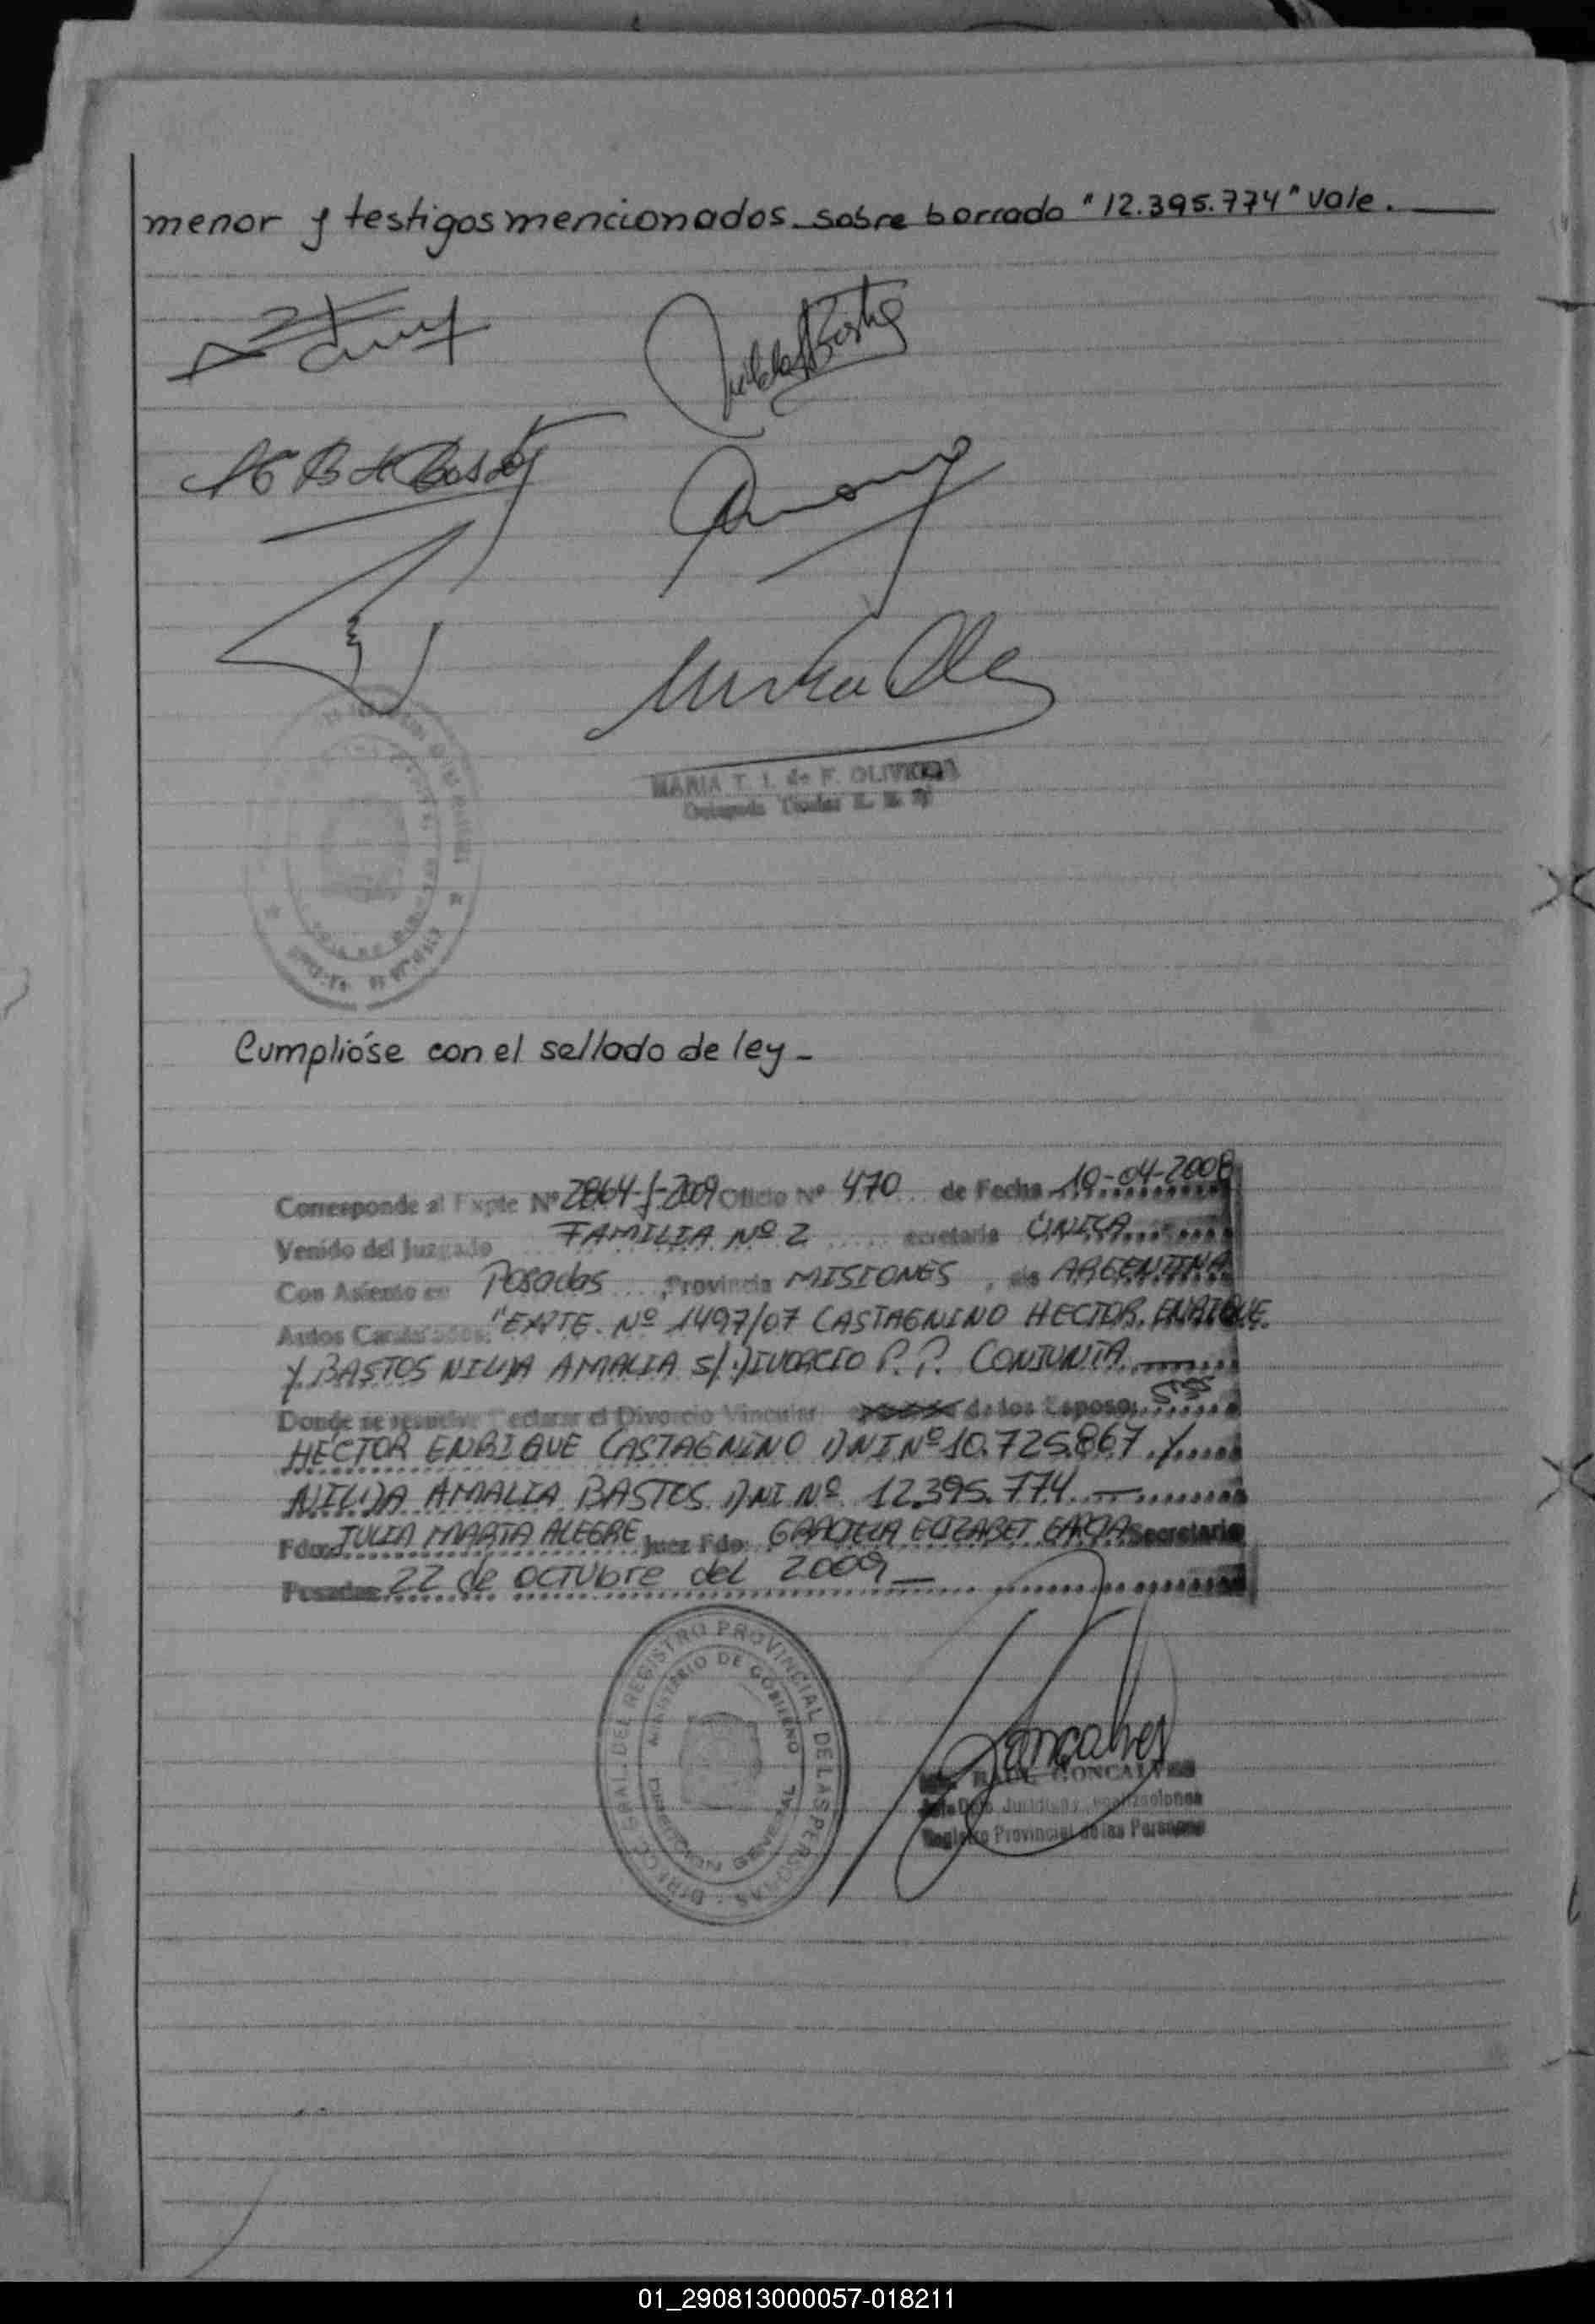 menor y testigos mencionados. sobre borrado "12.395.774" vale.
MARIA T. I. de F. OLIVEIRA
Cumplióse con el sellado de ley-
Corresponde al Expte Nº 2864-J-2009 Oficio Nº 470 de Fecha 10-04-2008
Venido del Juzgado FAMILIA Nº 2 ecretaria ÚNICA
Con Asiento en Posadas, Provincia MISIONES, de ARGENTINA
Autos Caratulados: "EXPTE. Nº 1497/07 CASTAGNINO HECTOR ENRIQUE
Y BASTOS NILDA AMALIA S/ DIVORCIO P.P. CONJUNTA
Donde se resuelve Declarar el Divorcio Vincular de los Esposos Sres
HECTOR ENRIQUE CASTAGNINO DNI Nº 10.725.867 Y
NILDA AMALIA BASTOS DNI Nº 12.395.774
Fdo: JULIA MARTA ALEGRE Juez Fdo: GRACIELA ELIZABET GARCIA Secretario
Posadas 22 de octubre del 2009
DIRECC. GRAL. DEL REGISTRO PROVINCIAL DE LAS PERSONAS
MINISTERIO DE GOBIERNO
DIRECCION GENERAL
Goncalves
RAUL GONCALVES
Registro Provincial de las Personas
01_290813000057-018211